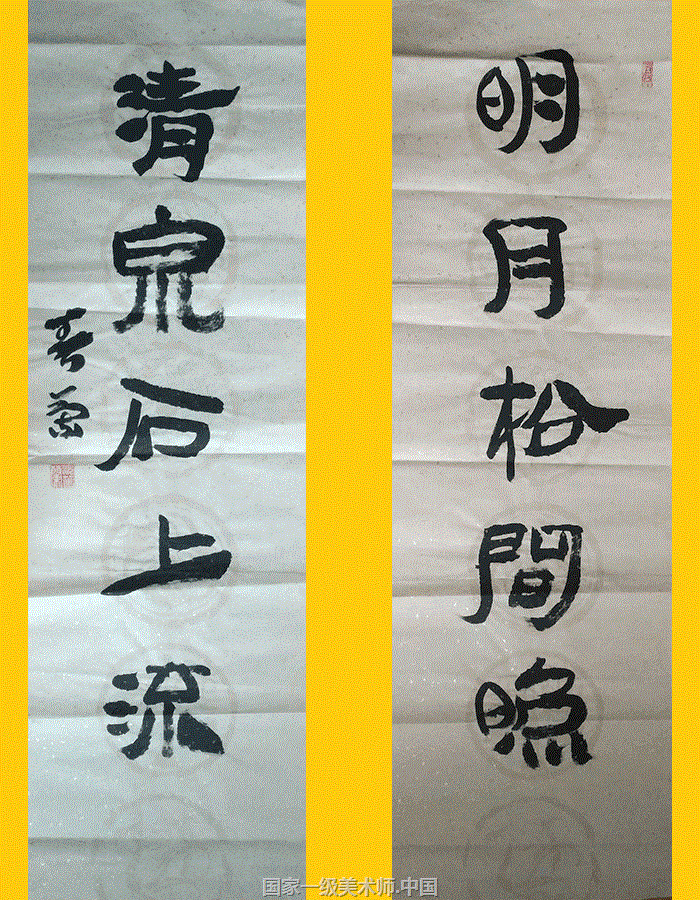 明月松間照
清泉石上流
国家一级美术师.中国